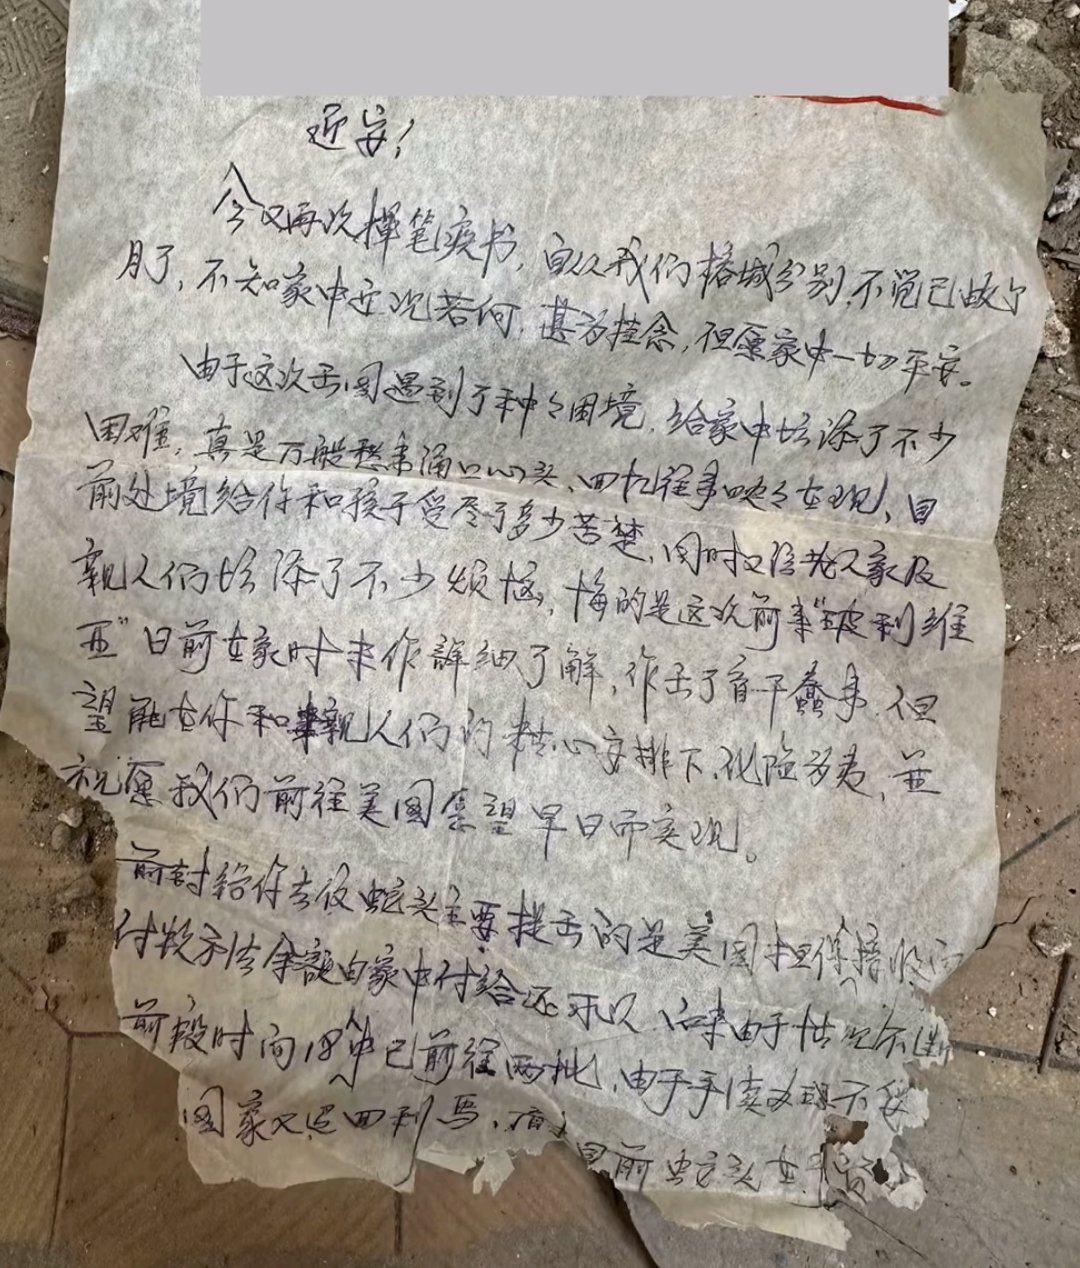 近安！
今又再次挥笔疾书，自从我们榕城分别，不觉已数个
月了，不知家中近况若何，甚为挂念，但愿家中一切平安。
由于这次出国遇到了种々困境，给家中增添了不少
困难，真是万般愁事涌上心头，回忆往事映々在现，目
前处境给你和孩子受尽了多少苦楚，同时又给老人家及
亲人们增添了不少烦恼，悔的是这次前来"玻利维
亚"日前在家时未作详细了解，作出了盲干蠢事，但
望能在你和亲人们的精心安排下，化险为夷，並
祝愿我们前往美国愿望早日而实现。
前封给你去信蛇头主要提出的是美国担保接收
付款方法余额由家中付给还可以，后来由于情况
前段时间18个中已前往两批，由于手续办理不妥
国家又返回利马，目前蛇头在